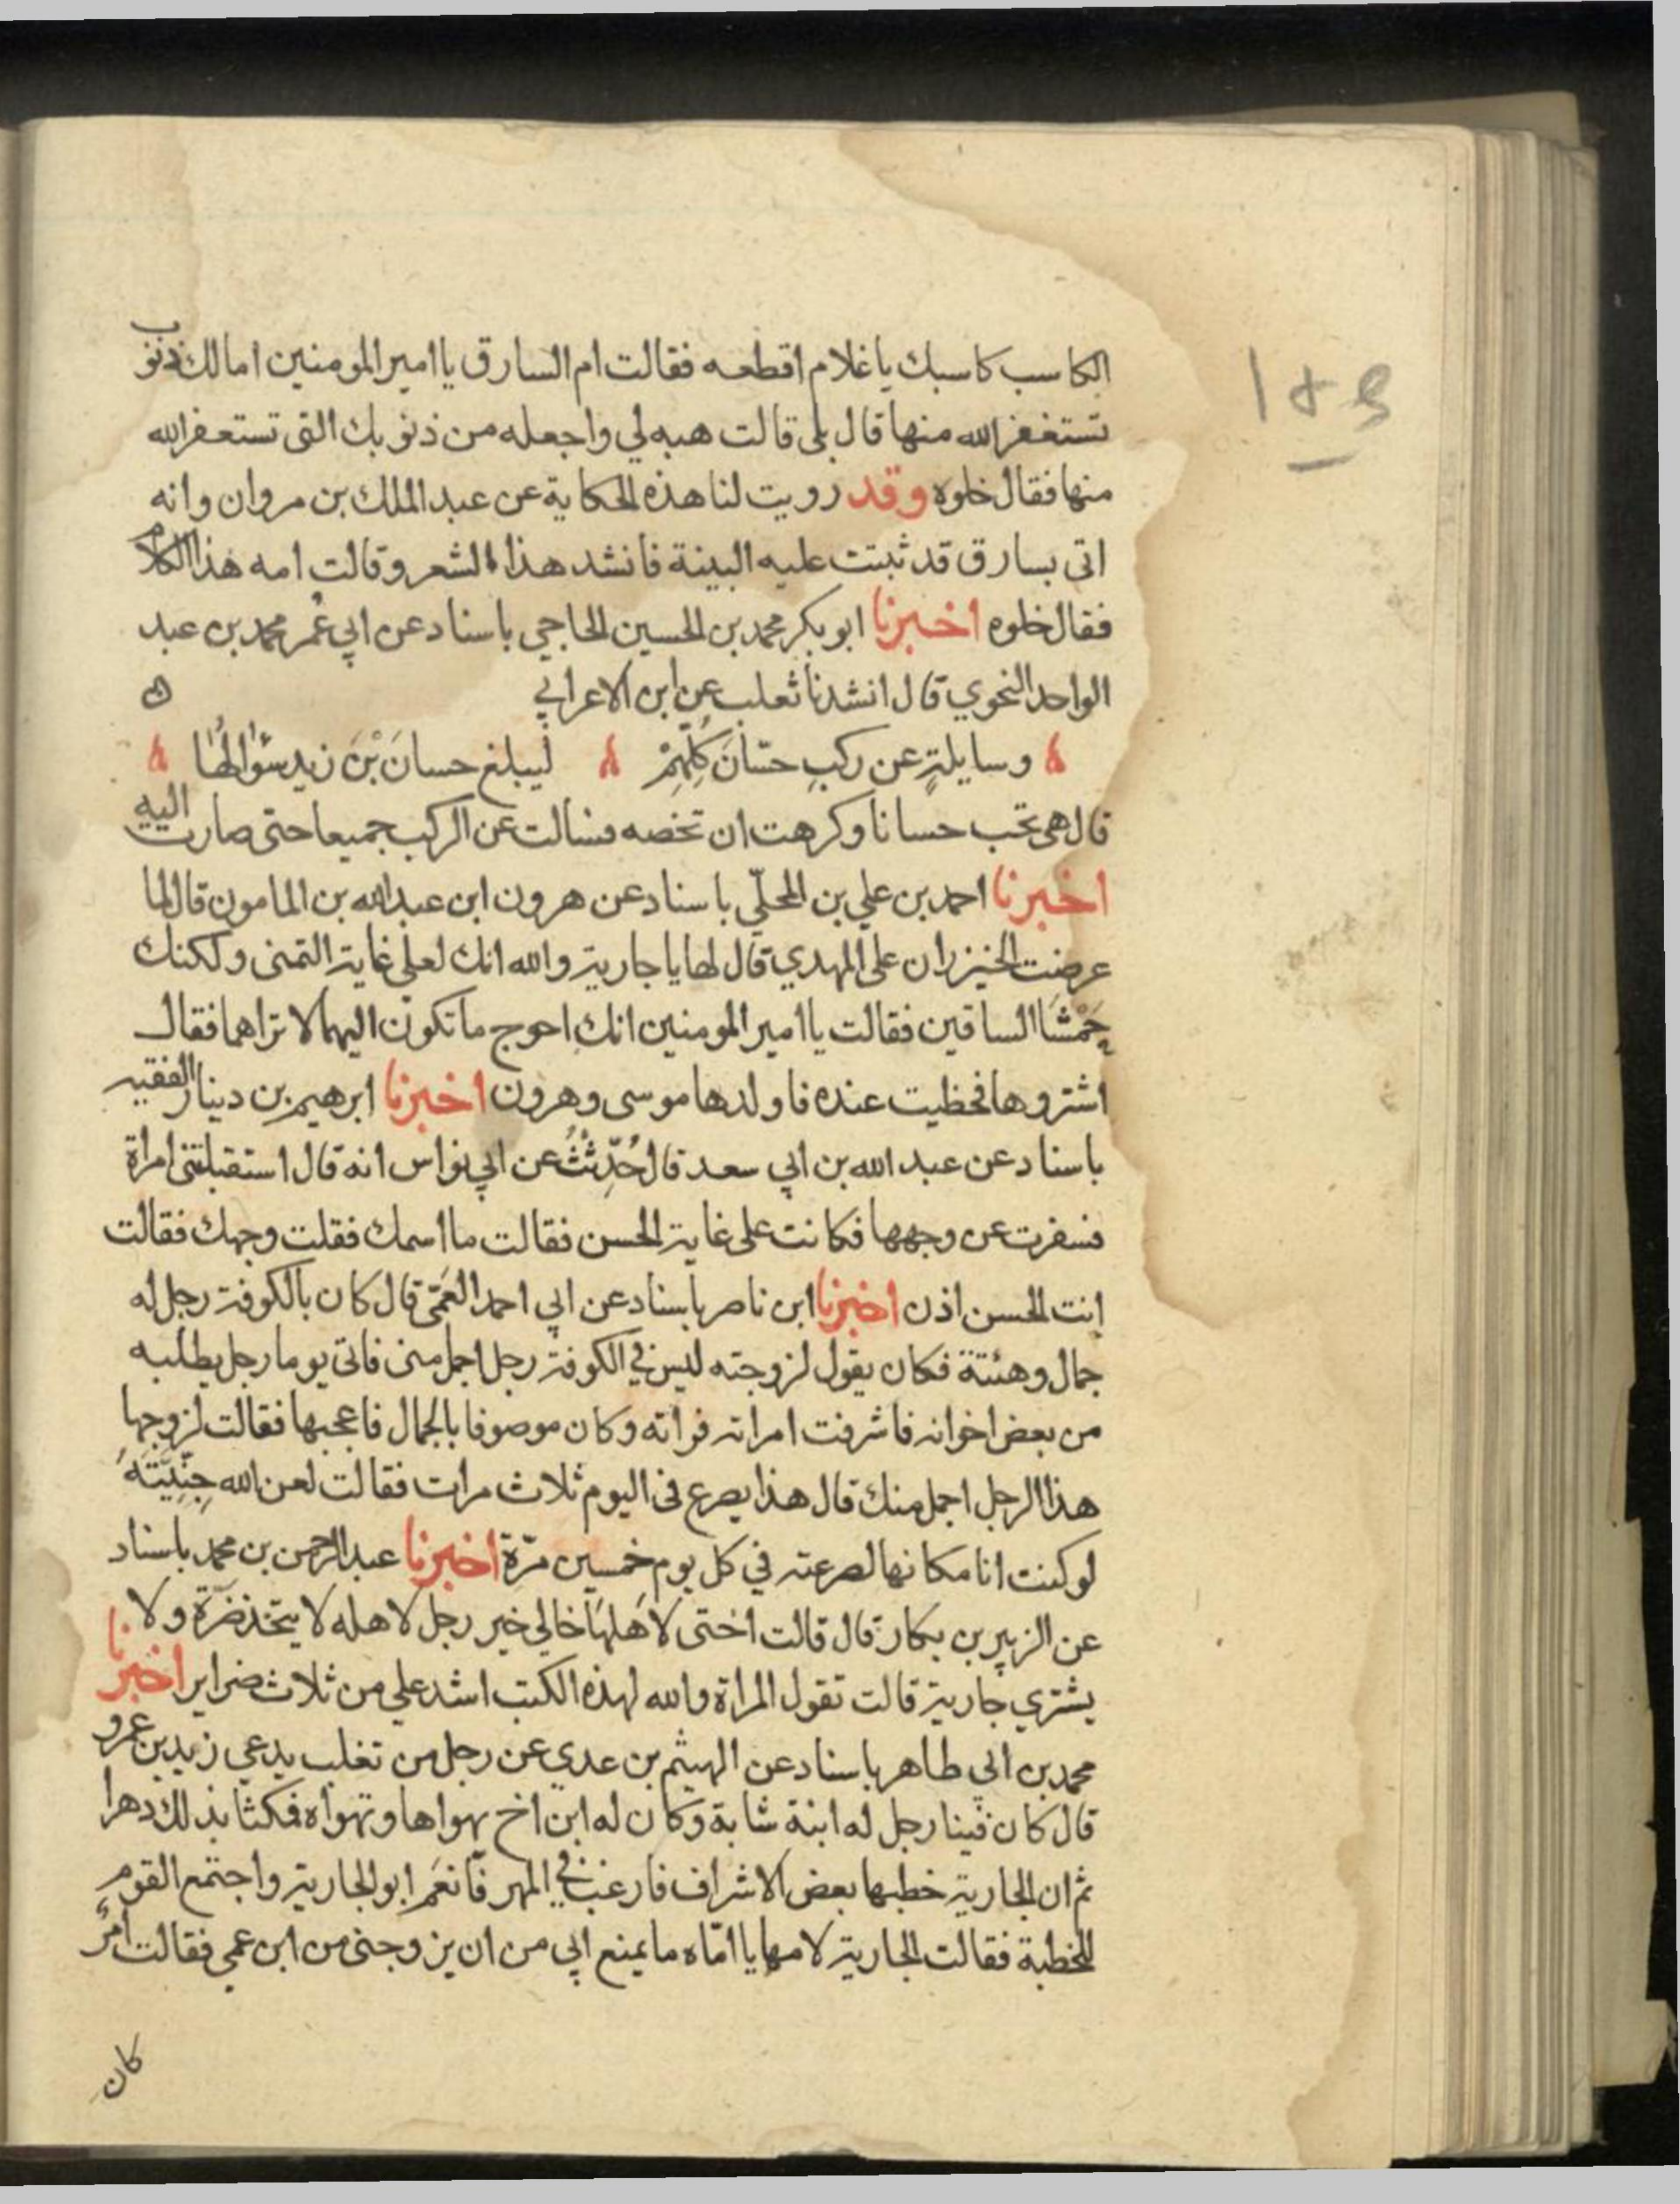 الكاسب كاسبك ياغلام اقطعه فقالت ام السارق ياامير المومنين امالك ذنوب
تستغفر الله منها قال بلى قالت هبه لي واجعله من ذنوبك التى تستعفر الله
منها فقال خلوه وقد رويت لنا هذه الحكاية عن عبد الملك بن مروان وانه
اتى بسارق قد ثبتت عليه البينة فانشد هذا الشعر وقالت امه هذا الكلام
فقال خلوه اخبرنا ابو بكر محمد بن الحسين الحاجي باسناد عن ابي عُمر محمد بن عبد
الواحد النحوي قال انشدنا ثعلب عن ابن الاعرابي
وسايلةٍ عن ركبِ حسّانَ كُلِّهِمْ ليبلغ حسانَ بْنَ زيد سؤالُها
قال هي تحب حسانا وكرهت ان تخصه فسالت عن الركب جميعا حتى صارت اليه
اخبرنا احمد بن علي بن المحلّي باسناد عن هرون ابن عبد الله بن المامون قال لما
عرضت الخيزران على المهدي قال لها يا جارية والله انك لعلى غاية التمنى ولكنك
حَمْشَا الساقين فقالت ياامير المومنين انك احوج ما تكون اليهما لا تراهما فقال
اشتروها فحظيت عنده فاولدها موسى وهرون اخبرنا ابرهيم بن دينار الفقيه
باسناد عن عبد الله بن ابي سعد قال حُدِّثْتُ عن ابي نواس انه قال استقبلتنى امراة
فسفرت عن وجهها فكانت على غاية الحسن فقالت ما اسمك فقلت وجهك فقالت
انت الحسن اذن اخبرنا ابن ناصر باسناد عن ابي احمد العَمّى قال كان بالكوفة رجل له
جمال وهئتة فكان يقول لزوجته ليس في الكوفة رجل اجمل منى فاتى يوما رجل يطلبه
من بعض اخوانه فاشرفت امراته فراته وكان موصوفا بالجمال فاعجبها فقالت لزوجها
هذا الرجل اجمل منك قال هذا يصرع فى اليوم ثلاث مرات فقالت لعن الله جِنِّيَّتَهُ
لو كنت انا مكانها لصرعته في كل يوم خمسين مرّة اخبرنا عبد الرحمن بن محمد باسناد
عن الزبير بن بكار قال قالت اختى لاهلها خالي خير رجل لاهله لا يتخذ ضَرّة ولا
يشتري جارية قالت تقول المراة والله لهذه الكتب اشد علي من ثلاث ضراير اخبرنا
محمد بن ابي طاهر باسناد عن الهيثم بن عدي عن رجل من تغلب يدعي زيد بن عمرو
قال كان فينا رجل له ابنة شابة وكان له ابن اخ يهواها وتهواه فمكثا بذلك دهرا
ثم ان الجارية خطبها بعض الاشراف فارغب في المهر فانعَم ابو الجارية واجتمع القوم
للخطبة فقالت الجارية لامها يا امّاه ما يمنع ابي من ان يزوجنى من ابن عمي فقالت امرٌ
كان